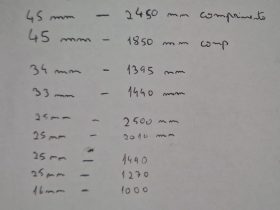 45 mm - 2450 mm comprimento
45 mm - 1850 mm comp
34 mm - 1395 mm
33 mm - 1440 mm
25 mm - 2500 mm
25 mm - 2010 mm
25 mm - 1490
25 mm - 1270
16 mm - 1000